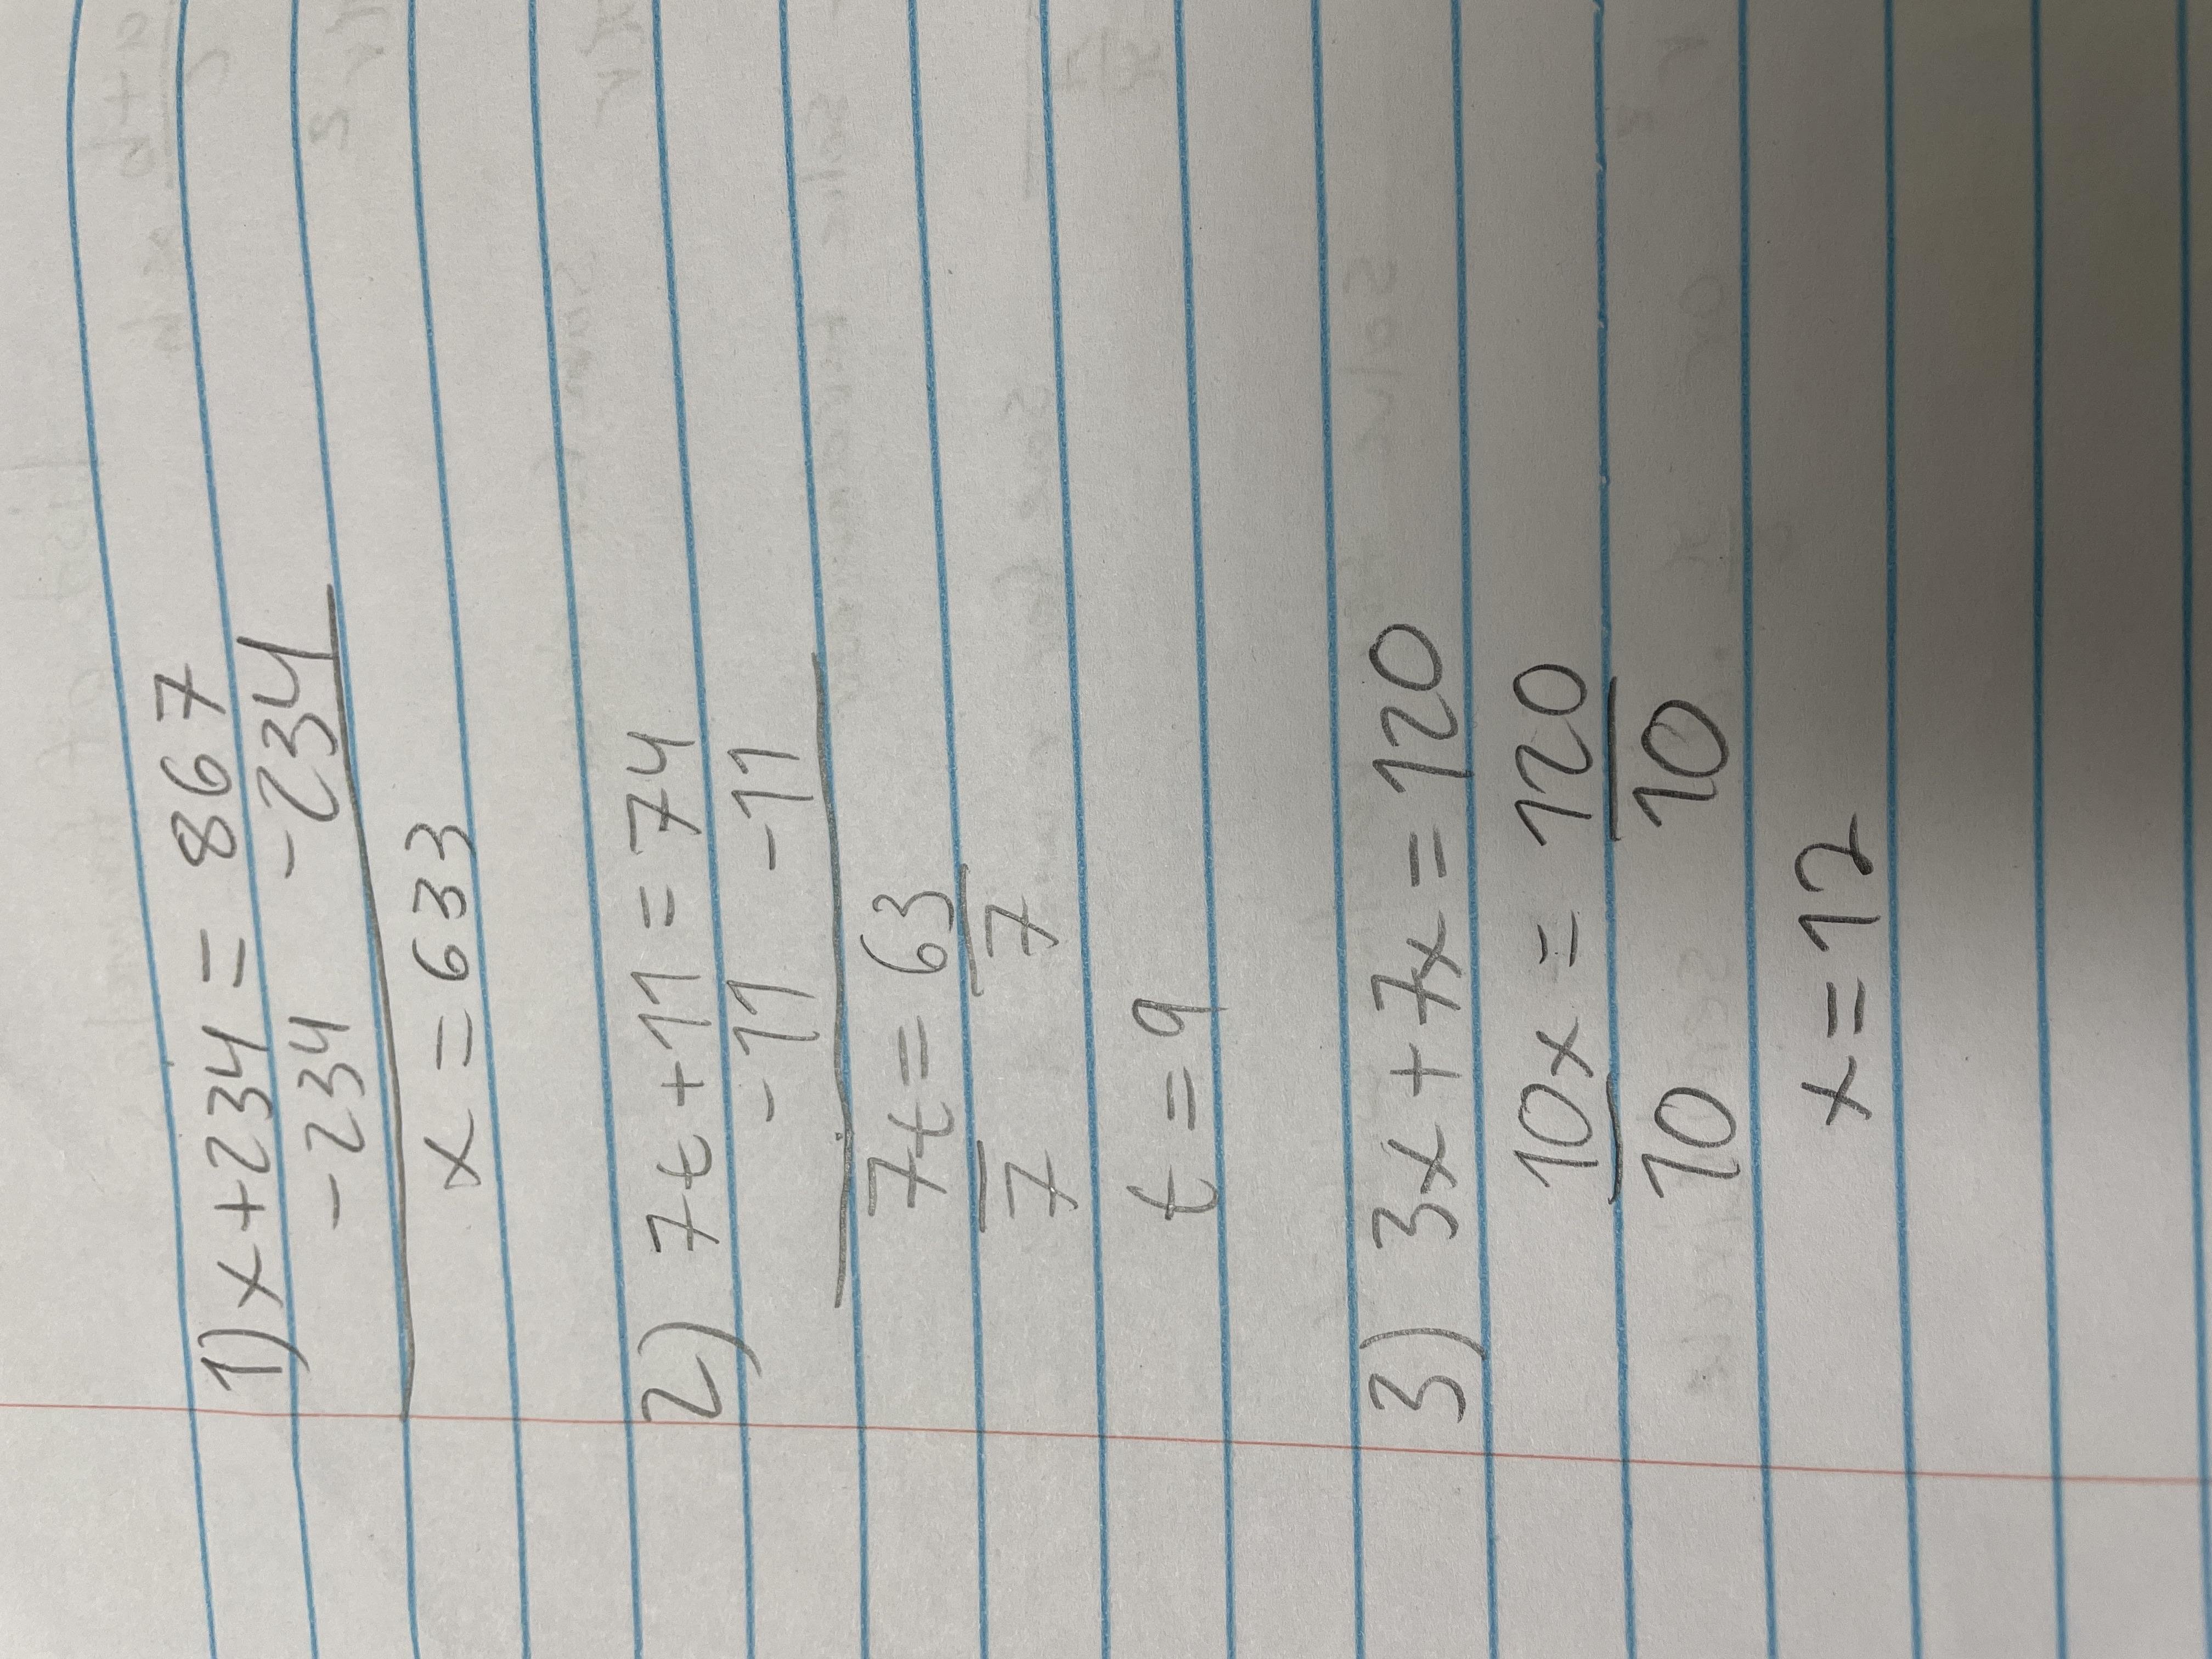 1) x + 234 = 867
- 234 - 234
x = 633
2) 7t + 11 = 74
- 11 - 11
7t = 63
7 7
t = 9
3) 3x + 7x = 120
10x = 120
10 10
x = 12